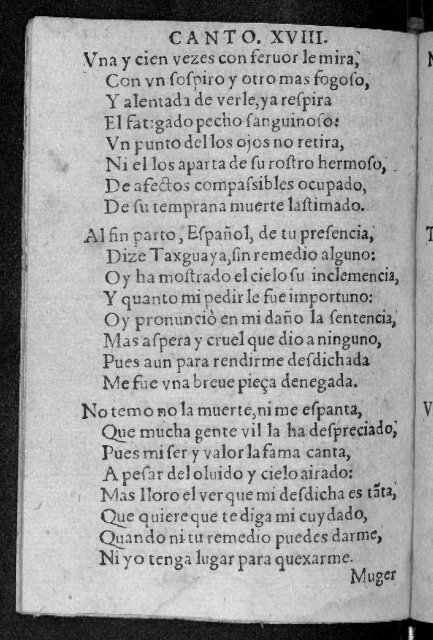 CANTO. XVIII.
Vna y cien vezes con feruor le mira,
Con vn ſoſpiro y otro mas fogoſo,
Y alentada de verle, ya reſpira
El fatigado pecho ſanguinoſo:
Vn punto dellos ojos no retira,
Ni ellos aparta de ſu roſtro hermoſo,
De afectos compaſsibles ocupado,
De ſu temprana muerte laſtimado.
Al fin parto, Eſpañol, de tu preſencia,
Dize Taxguaya, ſin remedio alguno:
Oy ha moſtrado el cielo ſu inclemencia,
Y quanto mi pedirle fue importuno:
Oy pronunciò en mi daño la ſentencia,
Mas aſpera y cruel que dio a ninguno,
Pues aun para rendirme deſdichada
Me fue vna breue pieça denegada.
No temo no la muerte, ni me eſpanta,
Que mucha gente vil la ha deſpreciado,
Pues mi ſer y valor la fama canta,
A peſar del oluido y cielo airado:
Mas lloro el ver que mi deſdicha es tãta,
Que quiere que te diga mi cuydado,
Quando ni tu remedio puedes darme,
Ni yo tenga lugar para quexarme.
Muger